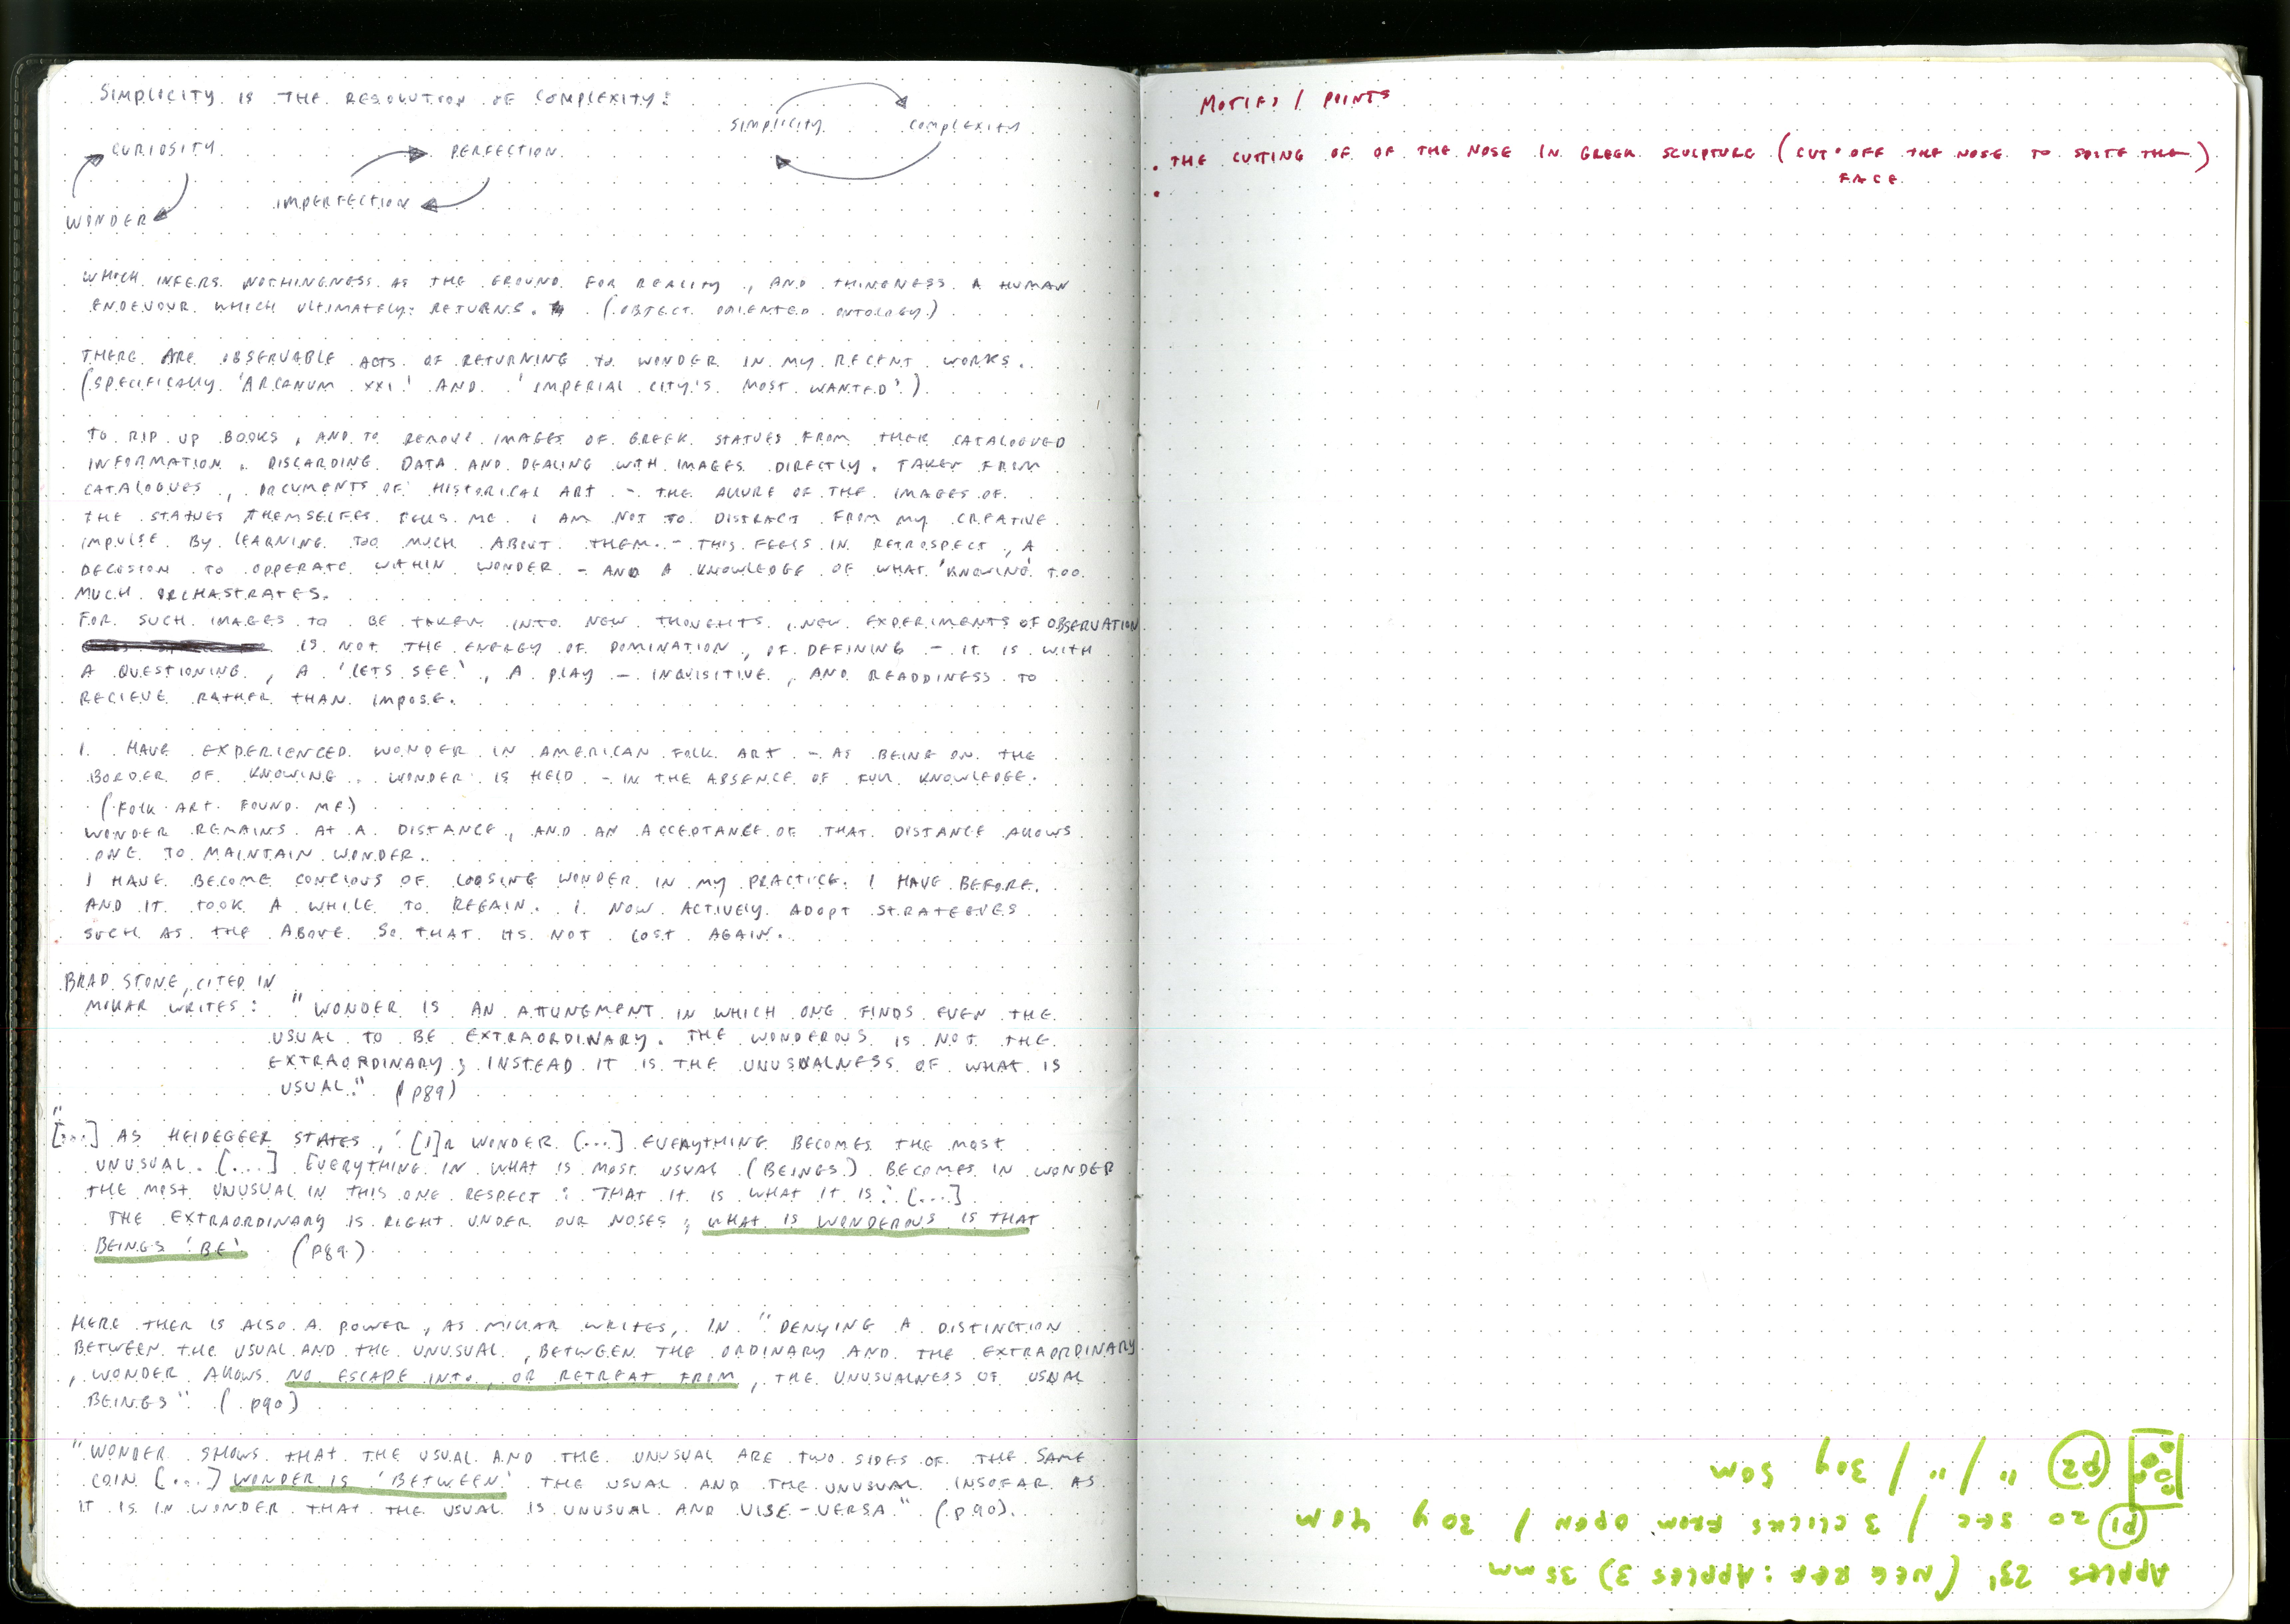 SIMPLICITY IS THE RESOLUTION OF COMPLEXITY:
SIMPLICITY COMPLEXITY
CURIOSITY PERFECTION
WONDER IMPERFECTION
WHICH INFERS NOTHINGNESS AS THE GROUND FOR REALITY, AND THINGNESS A HUMAN
ENDEVOUR WHICH ULTIMATELY RETURNS. (OBJECT ORIENTED ONTOLOGY)
THERE ARE OBSERVABLE ACTS OF RETURNING TO WONDER IN MY RECENT WORKS.
(SPECIFICALLY 'ARCANUM XXI' AND 'IMPERIAL CITY'S MOST WANTED')
TO RIP UP BOOKS, AND TO REMOVE IMAGES OF GREEK STATUES FROM THER CATALOGUED
INFORMATION. DISCARDING DATA AND DEALING WITH IMAGES DIRECTLY. TAKEN FROM
CATALOGUES, DOCUMENTS OF HISTORICAL ART - THE ALLURE OF THE IMAGES OF
THE STATUES THEMSELFES TELLS ME I AM NOT TO DISTRACT FROM MY CREATIVE
IMPULSE BY LEARNING TOO MUCH ABOUT THEM. - THIS FEELS IN RETROSPECT, A
DECISION TO OPPERATE WITHIN WONDER - AND A KNOWLEDGE OF WHAT 'KNOWING' TOO
MUCH ORCHASTRATES.
FOR SUCH IMAGES TO BE TAKEN INTO NEW THOUGHTS, NEW EXPERIMENTS OF OBSERVATION
IS NOT THE ENERGY OF DOMINATION, OF DEFINING - IT IS WITH
A QUESTIONING, A 'LETS SEE', A PLAY - INQUISITIVE, AND READDINESS TO
RECIEVE RATHER THAN IMPOSE.
I HAVE EXPERIENCED WONDER IN AMERICAN FOLK ART - AS BEING ON THE
BORDER OF KNOWING. WONDER IS HELD - IN THE ABSENCE OF FULL KNOWLEDGE.
(FOLK ART FOUND ME)
WONDER REMAINS AT A DISTANCE, AND AN ACCEPTANCE OF THAT DISTANCE ALLOWS
ONE TO MAINTAIN WONDER.
I HAVE BECOME CONCIOUS OF LOOSING WONDER IN MY PRACTICE. I HAVE BEFORE
AND IT TOOK A WHILE TO REGAIN. I NOW ACTIVELY ADOPT STRATEGYES
SUCH AS THE ABOVE SO THAT ITS NOT LOST AGAIN.
BRAD STONE, CITED IN
MILLAR WRITES: "WONDER IS AN ATTUNGMENT IN WHICH ONE FINDS EVEN THE
USUAL TO BE EXTRAORDINARY. THE WONDEROUS IS NOT THE
EXTRAORDINARY; INSTEAD IT IS THE UNUSUALNESS OF WHAT IS
USUAL." (P89)
"[...] AS HEIDEGGER STATES, '[I]N WONDER [...] EVERYTHING BECOMES THE MOST
UNUSUAL. [....] EVERYTHING IN WHAT IS MOST USUAL (BEINGS) BECOMES IN WONDER
THE MOST UNUSUAL IN THIS ONE RESPECT: THAT IT IS WHAT IT IS.' [...]
THE EXTRAORDINARY IS RIGHT UNDER OUR NOSES; WHAT IS WONDEROUS IS THAT
BEINGS 'BE' (P89)
HERE THER IS ALSO A POWER, AS MILLAR WRITES, IN "DENYING A DISTINCTION
BETWEEN THE USUAL AND THE UNUSUAL, BETWEEN THE ORDINARY AND THE EXTRAORDINARY
, WONDER ALLOWS NO ESCAPE INTO, OR RETREAT FROM, THE UNUSUALNESS OF USUAL
BEINGS" (P90)
"WONDER SHOWS THAT THE USUAL AND THE UNUSUAL ARE TWO SIDES OF THE SAME
COIN [...] WONDER IS 'BETWEEN' THE USUAL AND THE UNUSUAL INSOFAR AS
IT IS IN WONDER THAT THE USUAL IS UNUSUAL AND VISE-VERSA" (P90).
MOTIFS / POINTS
• THE CUTTING OF OF THE NOSE IN GREEK SCULPTURE (CUT OFF THE NOSE TO SPITE THE)
FACE
•
APPLES 23' (NEG REF: APPLES 3) 35mm
P1 20 SEC / 3 CLICKS FROM OPEN / 30y 40m
P2 " / " / 30y 50m